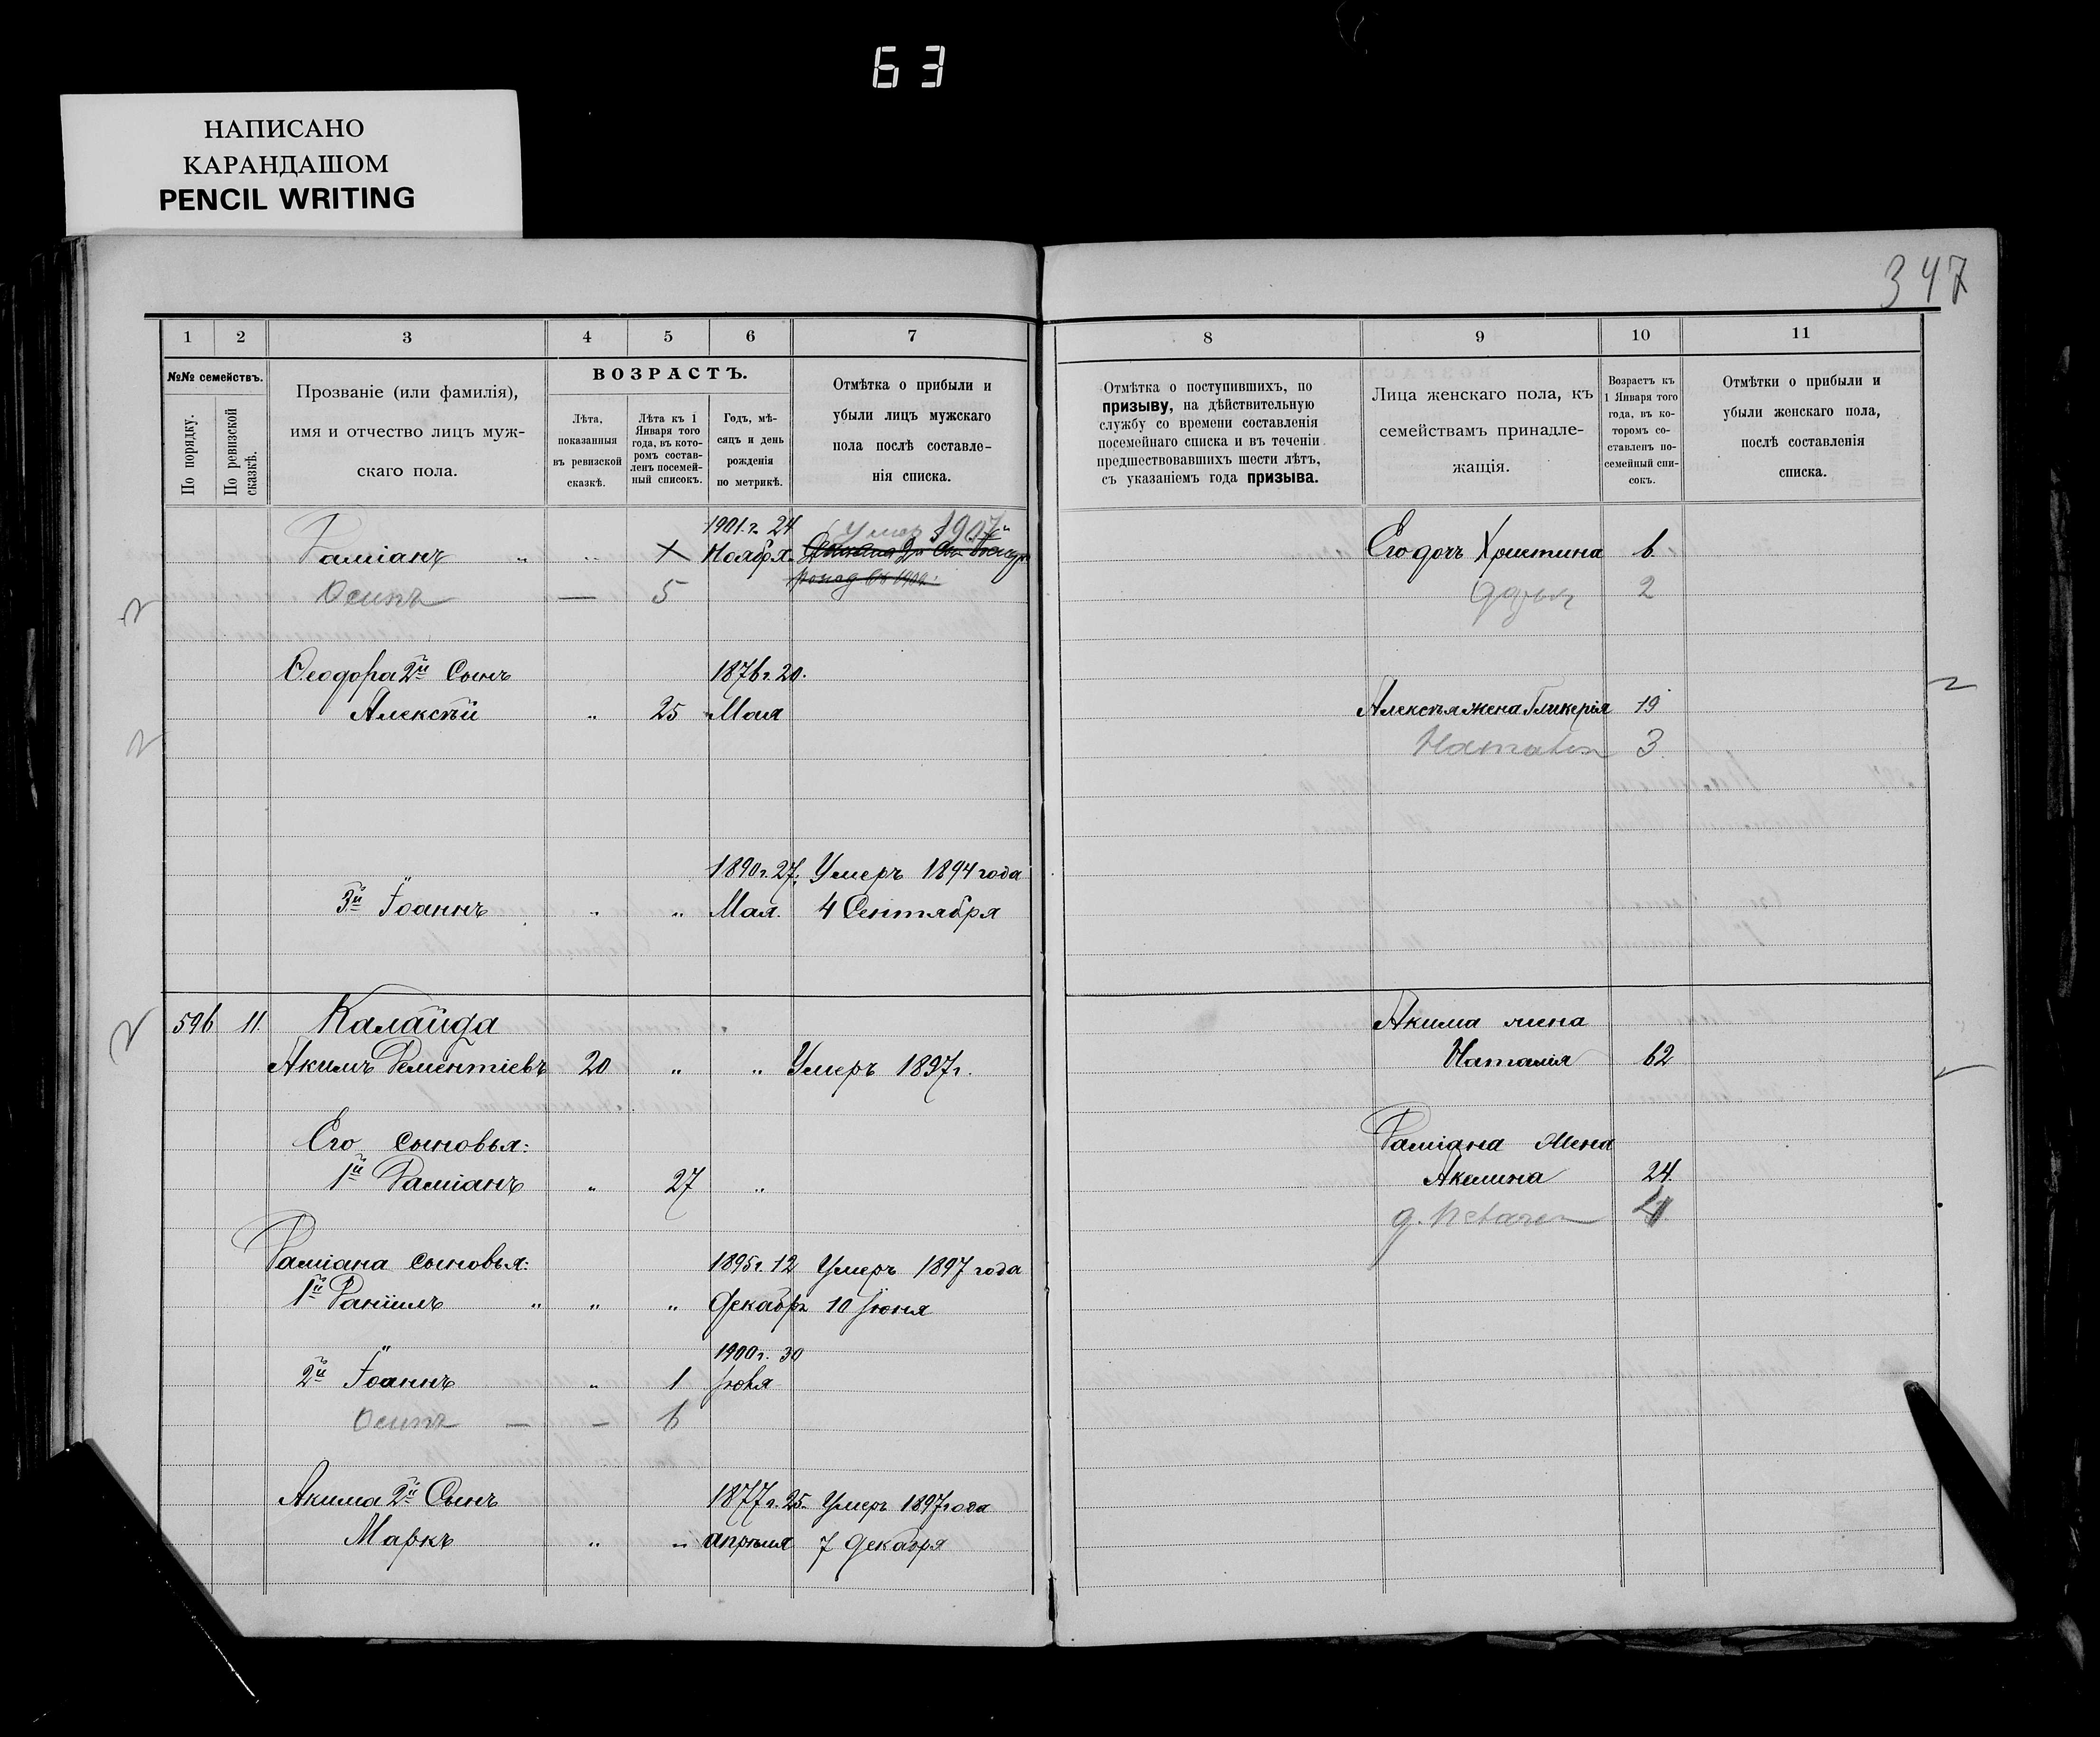 63
НАПИСАНО
КАРАНДАШОМ
PENCIL WRITING
347
1 2 3 4 5 6 7
№№ семействъ.
По порядку.
По ревизской сказкѣ.
Прозваніе (или фамилія),
имя и отчество лицъ муж-
скаго пола.
ВОЗРАСТЪ.
Лѣта,
показанныя
въ ревизской
сказкѣ.
Лѣта къ 1
Января того
года, въ кото-
ромъ состав-
ленъ посемей-
ный список.
Годъ, мѣ-
сяцъ и день
рожденія
по метрикѣ.
Отмѣтка о прибыли и
убыли лицъ мужскаго
пола послѣ составле-
нія списка.
1901 г. 24 Умер 1907
Даміанъ " " Ноября
Осипъ — 5
Ѳеодора 2й Сынъ 1876 г. 20.
Алексѣй " 25 Мая
1890 г. 27. Умеръ 1894 года
3й Іоаннъ " " Мая. 4 Сентября
596 11. Калайда
Акимъ Дементіевъ 20 " " Умеръ 1897 г.
Его сыновья:
1й Даміанъ " 27 "
Даміана сыновья: 1895 г. 12 Умеръ 1897 года
1й Даніилъ " " " Декабр. 10 Іюня
1900 г. 30
2й Іоаннъ " 1 Іюня
Осипъ — — 6
Акима 2й Сынъ 1877 г. 25. Умеръ 1897 года
Маркъ " " апрѣля 7 Декабря
8 9 10 11
Отмѣтка о поступившихъ, по
призыву, на дѣйствительную
службу со времени составленія
посемейнаго списка и въ теченіи
предшествовавшихъ шести лѣтъ,
съ указаніемъ года призыва.
Лица женскаго пола, къ
семействамъ принадле-
жащія.
Возрастъ къ
1 Января того
года, въ ко-
торомъ со-
ставленъ по-
семейный спи-
сокъ.
Отмѣтки о прибыли и
убыли женскаго пола,
послѣ составленія
списка.
Его дочь Христина 6
2
Алексѣя жена Гликерія 19
3
Акима жена
Наталія 62
Даміана Жена
Акелина 24.